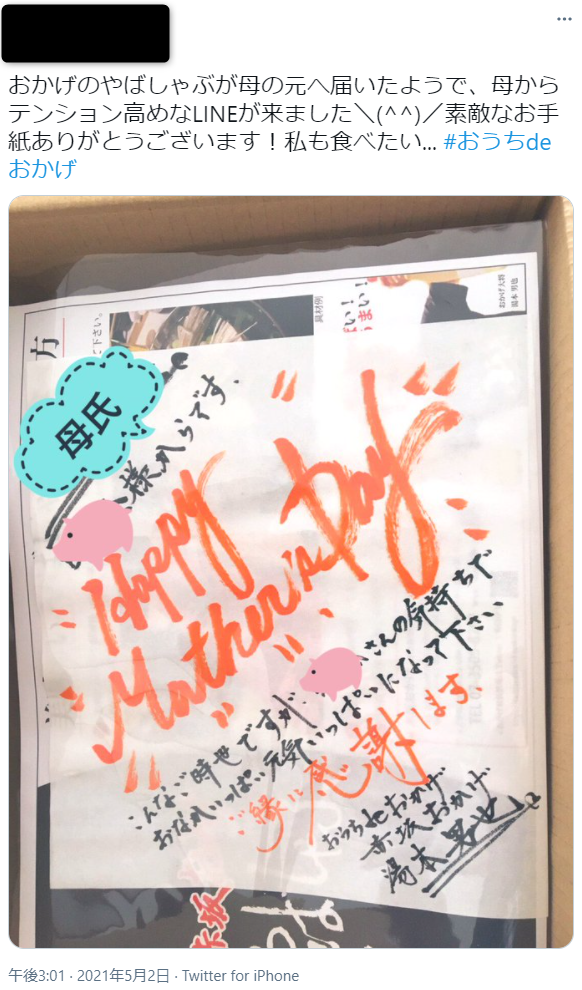 おかげのやばしゃぶが母の元へ届いたようで、母から
テンション高めなLINEが来ました＼(^^)／素敵なお手
紙ありがとうございます！私も食べたい... #おうちde
おかげ
方
に下さい。
具材例
い！
うまい！
おかげ大将
湯本 男也
母氏
様からです。
Happy
Mother's Day
さんの気持ちで
こんなご時世ですが
おなかいっぱい元気いっぱいになって下さい
ご縁に感謝します。
おうちdeおかげ
赤坂おかげ
湯本男也
赤坂
午後3:01 · 2021年5月2日 · Twitter for iPhone